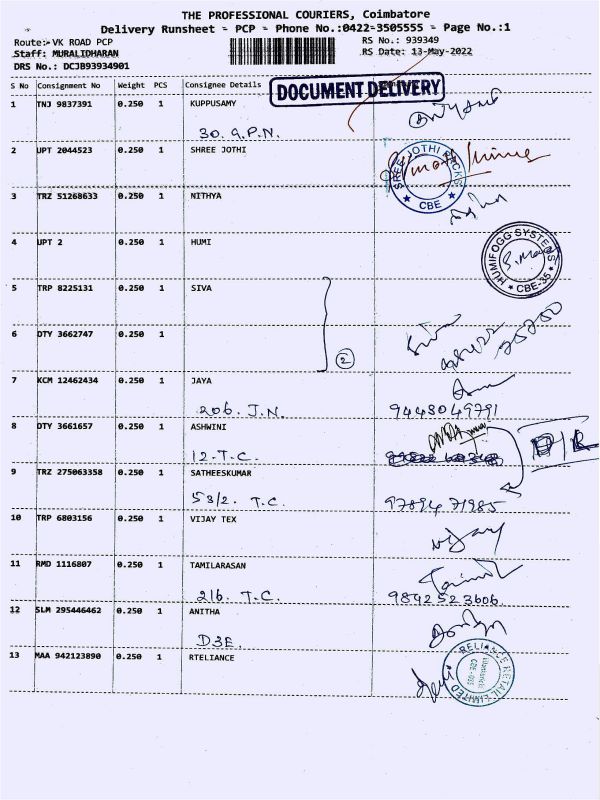 THE PROFESSIONAL COURIERS, Coimbatore
Delivery Runsheet - PCP - Phone No.:0422-3505555 - Page No.:1
Route:- VK ROAD PCP RS No.: 939349
Staff: MURALIDHARAN RS Date: 13-May-2022
DRS No.: DCJB93934901
S No Consignment No Weight PCS Consignee Details
DOCUMENT DELIVERY
1 TNJ 9837391 0.250 1 KUPPUSAMY
30. G.P.N.
2 UPT 2044523 0.250 1 SHREE JOTHI
SHREE JOTHI PACKS
CBE
3 TRZ 51268633 0.250 1 NITHYA
4 UPT 2 0.250 1 HUMI
HUMIFOGG SYSTEMS
CBE-35
5 TRP 8225131 0.250 1 SIVA
6 DTY 3662747 0.250 1
2
7 KCM 12462434 0.250 1 JAYA
206. J.N. 9448049791
8 DTY 3661657 0.250 1 ASHWINI
12-T.C.
9 TRZ 275063358 0.250 1 SATHEESKUMAR
53/2. T.C. 9789471985
10 TRP 6803156 0.250 1 VIJAY TEX
11 RMD 1116807 0.250 1 TAMILARASAN
216. T.C. 9842523606
12 SLM 295446462 0.250 1 ANITHA
D3E.
13 MAA 942123890 0.250 1 RTELIANCE
RELIANCE RETAIL LIMITED